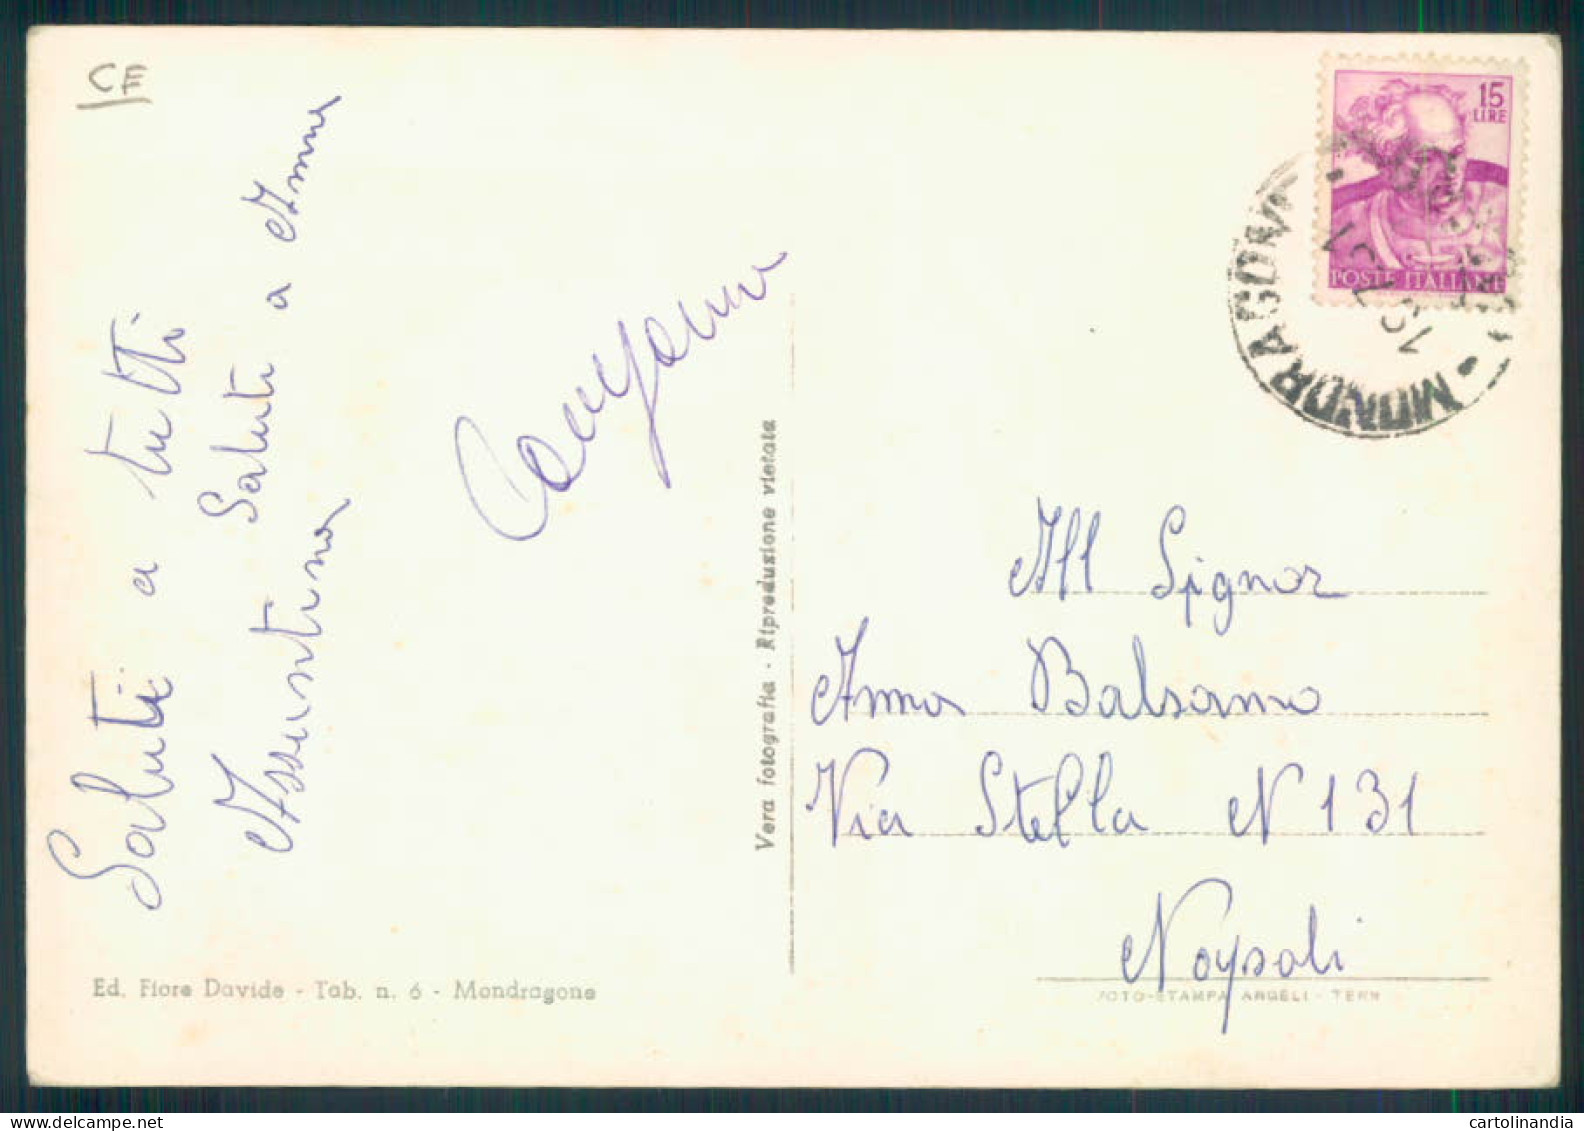 CE
Saluti a tutti
Saluti a Anna
Assuntina
15
LIRE
POSTE ITALIANE
MONDRAGONE
Vera fotografia - Riproduzione vietata
All Signor
Anna Balsamo
Via Stella N 131
Napoli
Ed. Fiore Davide - Tab. n. 6 - Mondragone
FOTO-STAMPA ANGELI - TERNI
cartolinandia